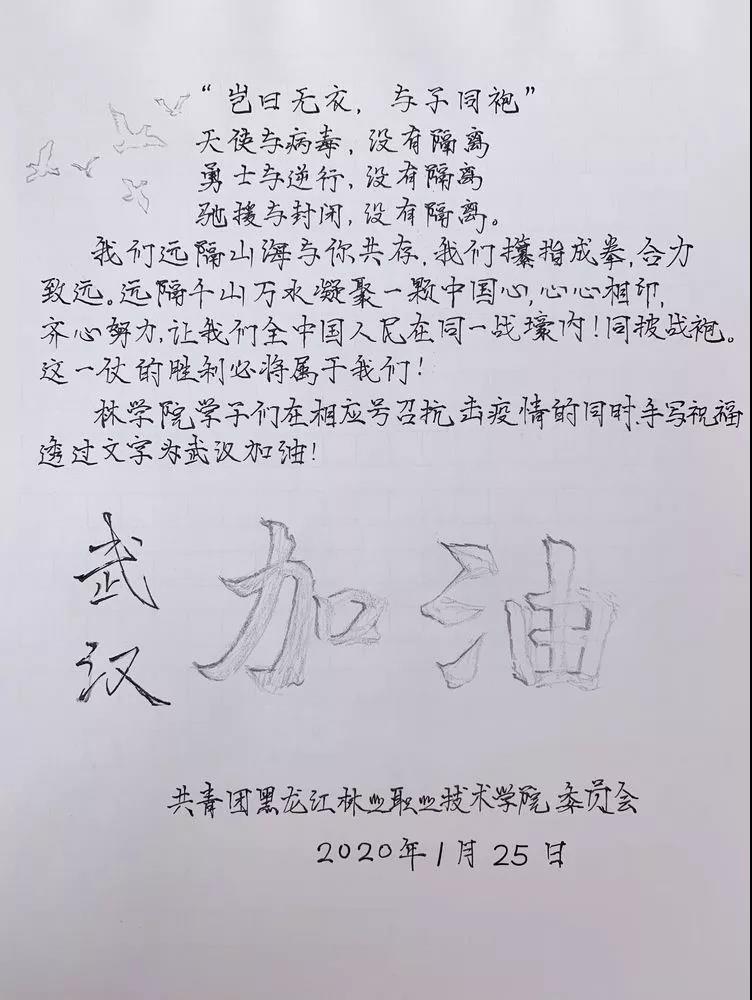 “岂曰无衣，与子同袍”
天使与病毒，没有隔离
勇士与逆行，没有隔离
驰援与封闭，没有隔离。
我们远隔山海与你共存，我们攥指成拳，合力
致远。远隔千山万水凝聚一颗中国心，心心相印，
齐心努力，让我们全中国人民在同一战壕内！同披战袍。
这一仗的胜利必将属于我们！
林学院学子们在相应号召抗击疫情的同时、手写祝福
透过文字为武汉加油！
武汉
加油
共青团黑龙江林业职业技术学院委员会
2020年1月25日